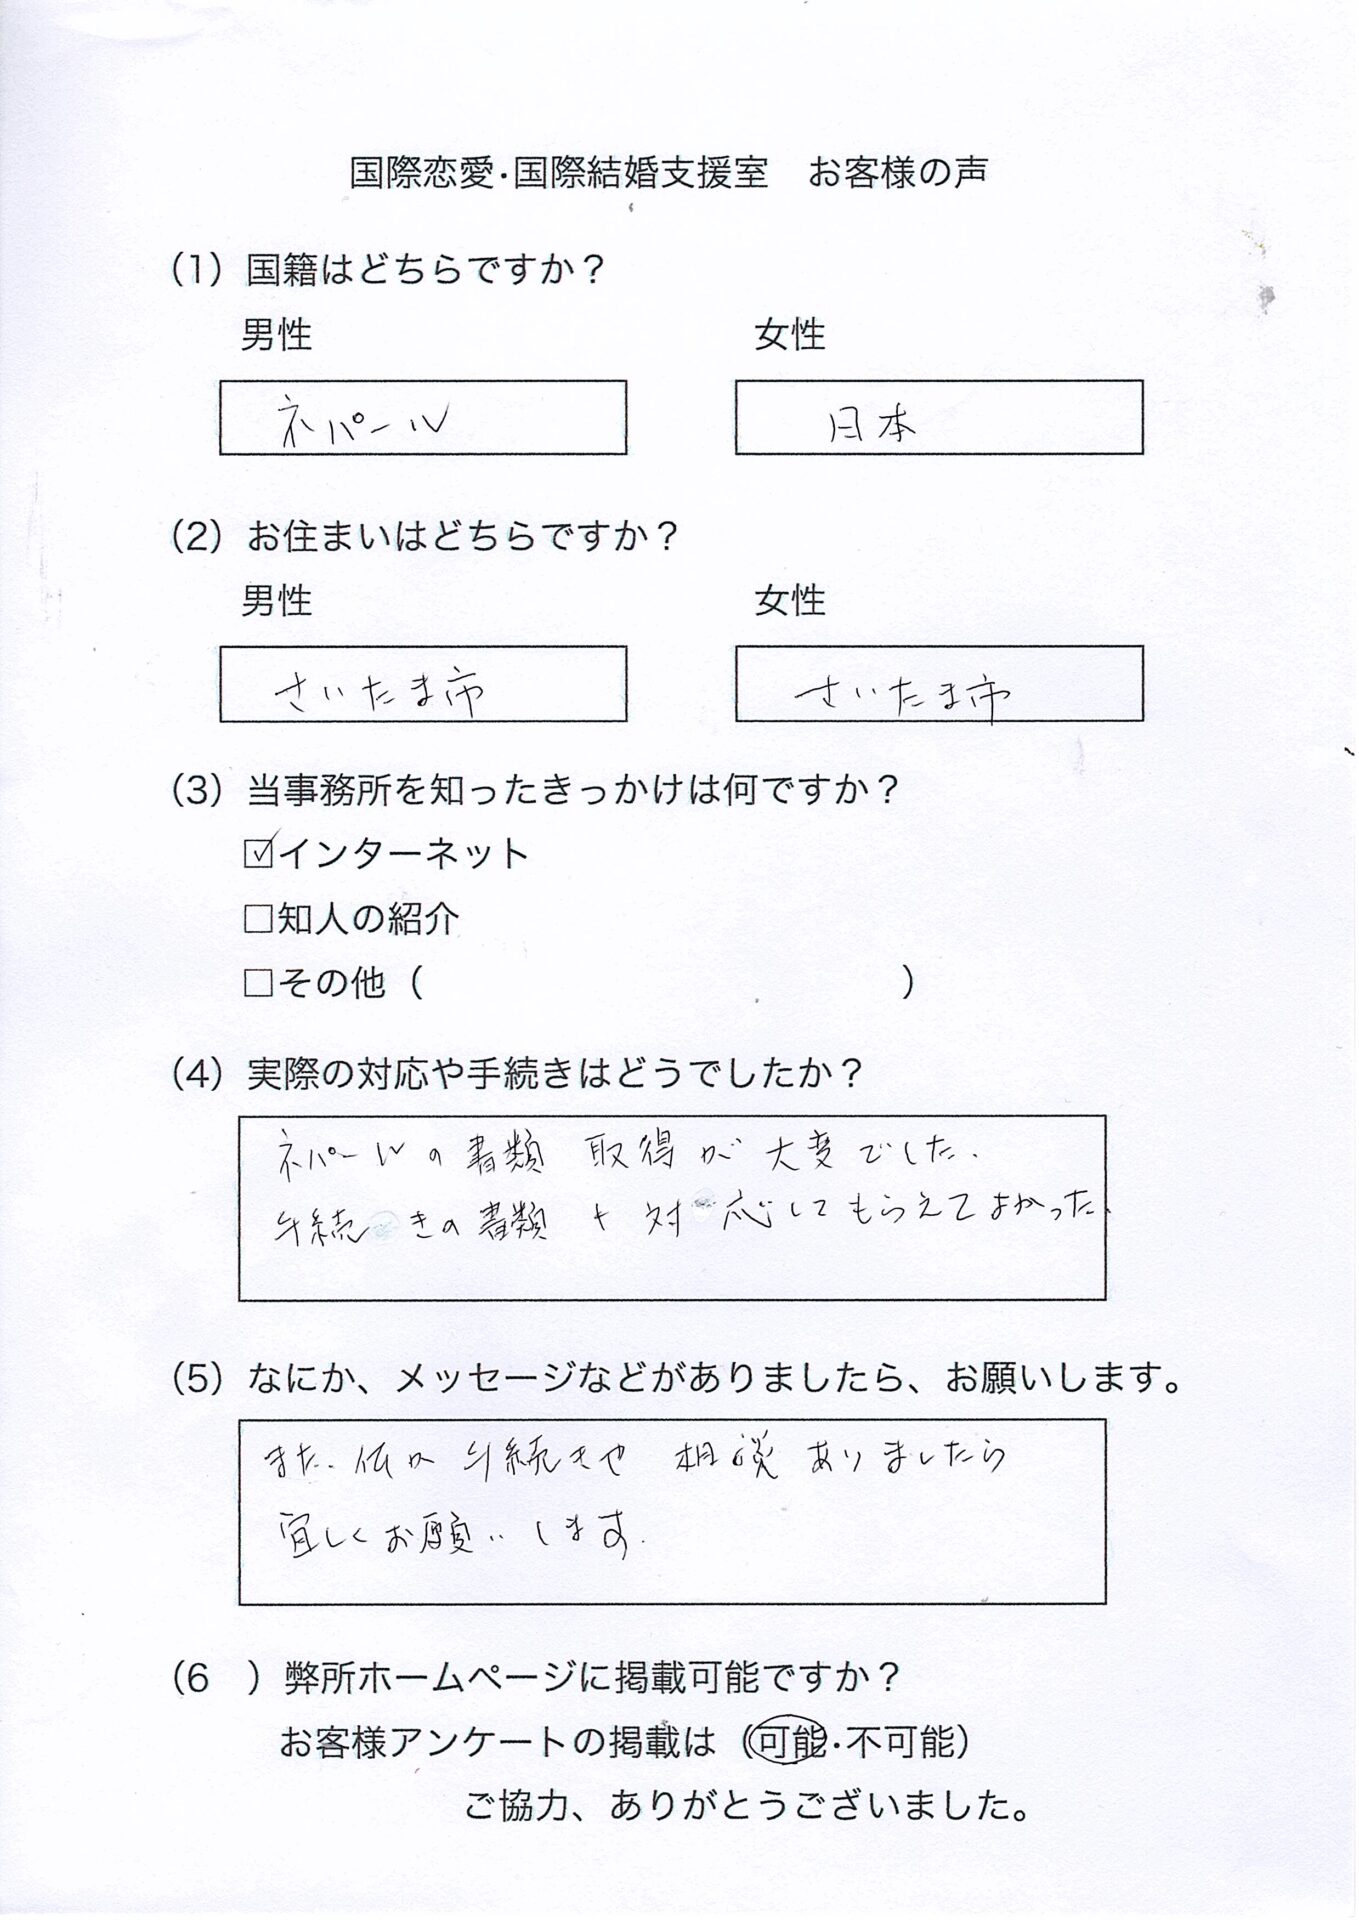 国際恋愛・国際結婚支援室　お客様の声
（1）国籍はどちらですか？
男性　女性
ネパール　日本
（2）お住まいはどちらですか？
男性　女性
さいたま市　さいたま市
（3）当事務所を知ったきっかけは何ですか？
☑インターネット
□知人の紹介
□その他（　　　　　　　）
（4）実際の対応や手続きはどうでしたか？
ネパールの書類 取得が大変でした.
手続きの書類 も 対応してもらえてよかった.
（5）なにか、メッセージなどがありましたら、お願いします。
また. 何か 手続きや 相談 ありましたら
宜しくお願いします.
（6　）弊所ホームページに掲載可能ですか？
お客様アンケートの掲載は（可能・不可能）
ご協力、ありがとうございました。